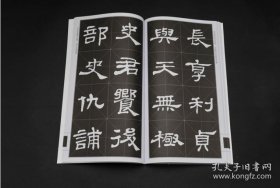 長享利貞
與天無極
史君饗後
部史仇誧
孔夫子旧书网